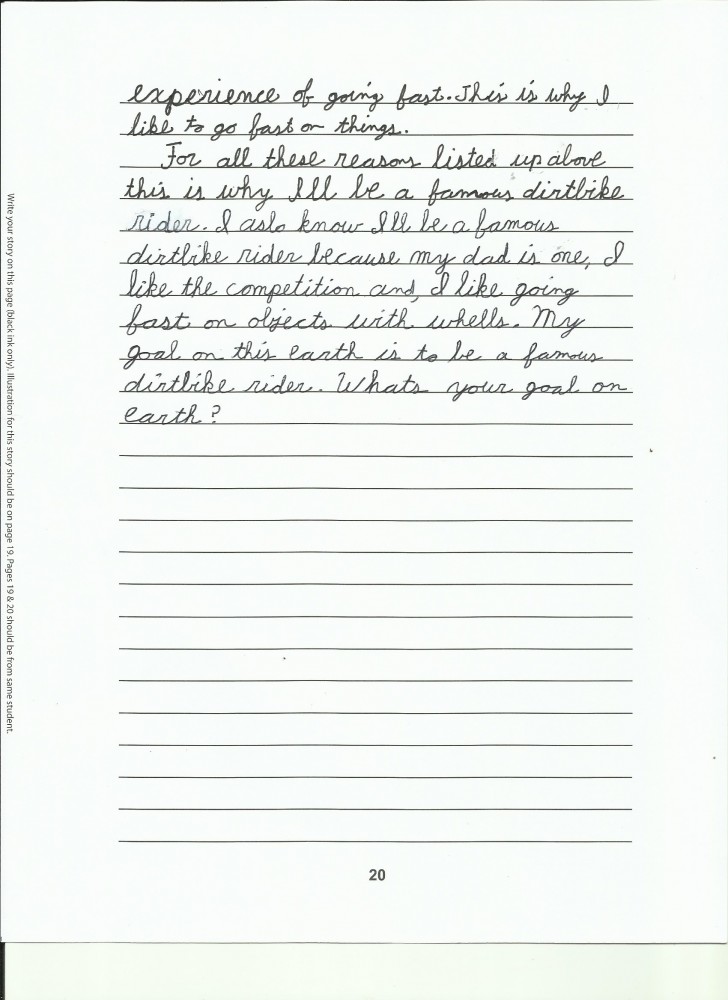 experience of going fast. This is why I
like to go fast on things.
For all these reasons listed up above
this is why I'll be a famous dirtbike
rider. I aslo know I'll be a famous
dirtbike rider because my dad is one, I
like the competition and, I like going
fast on objects with whells. My
goal on this earth is to be a famous
dirtbike rider. Whats your goal on
earth?
20
Write your story on this page (black ink only). Illustration for this story should be on page 19. Pages 19 & 20 should be from same student.